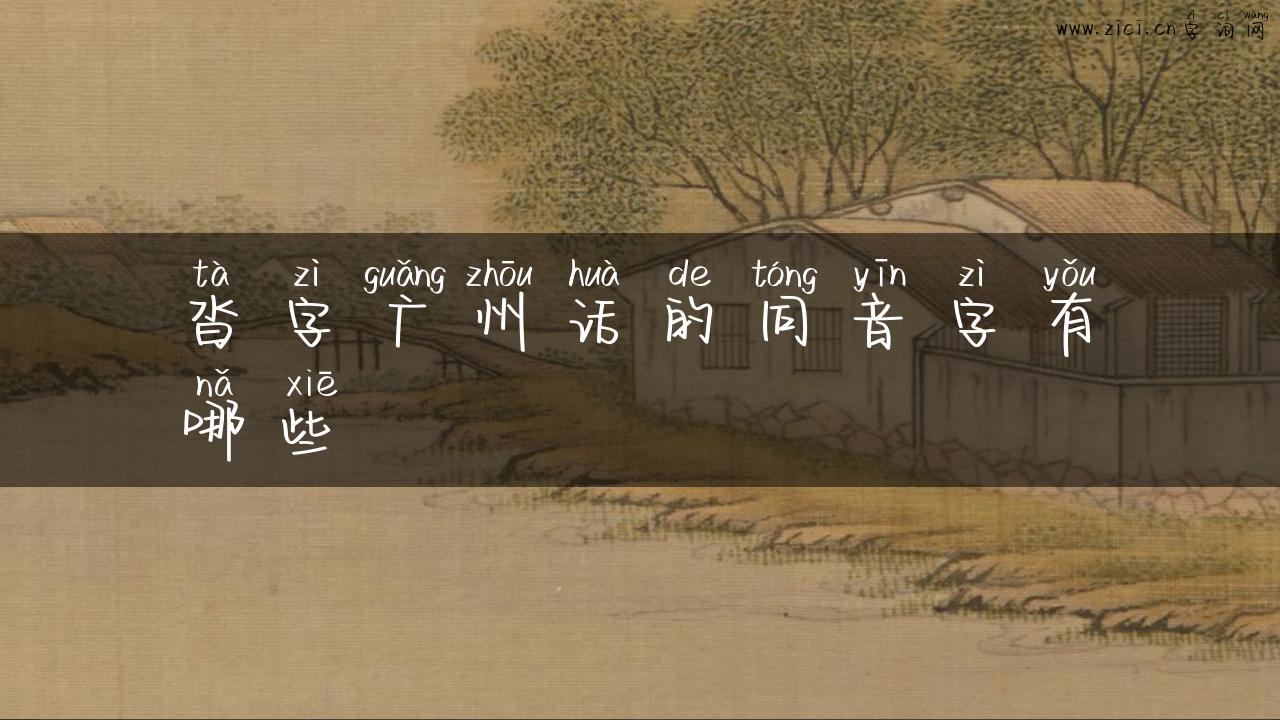 zì cí wǎng
www.zici.cn 字 词 网
tà zì guǎng zhōu huà de tóng yīn zì yǒu
沓 字 广 州 话 的 同 音 字 有
nǎ xiē
哪 些